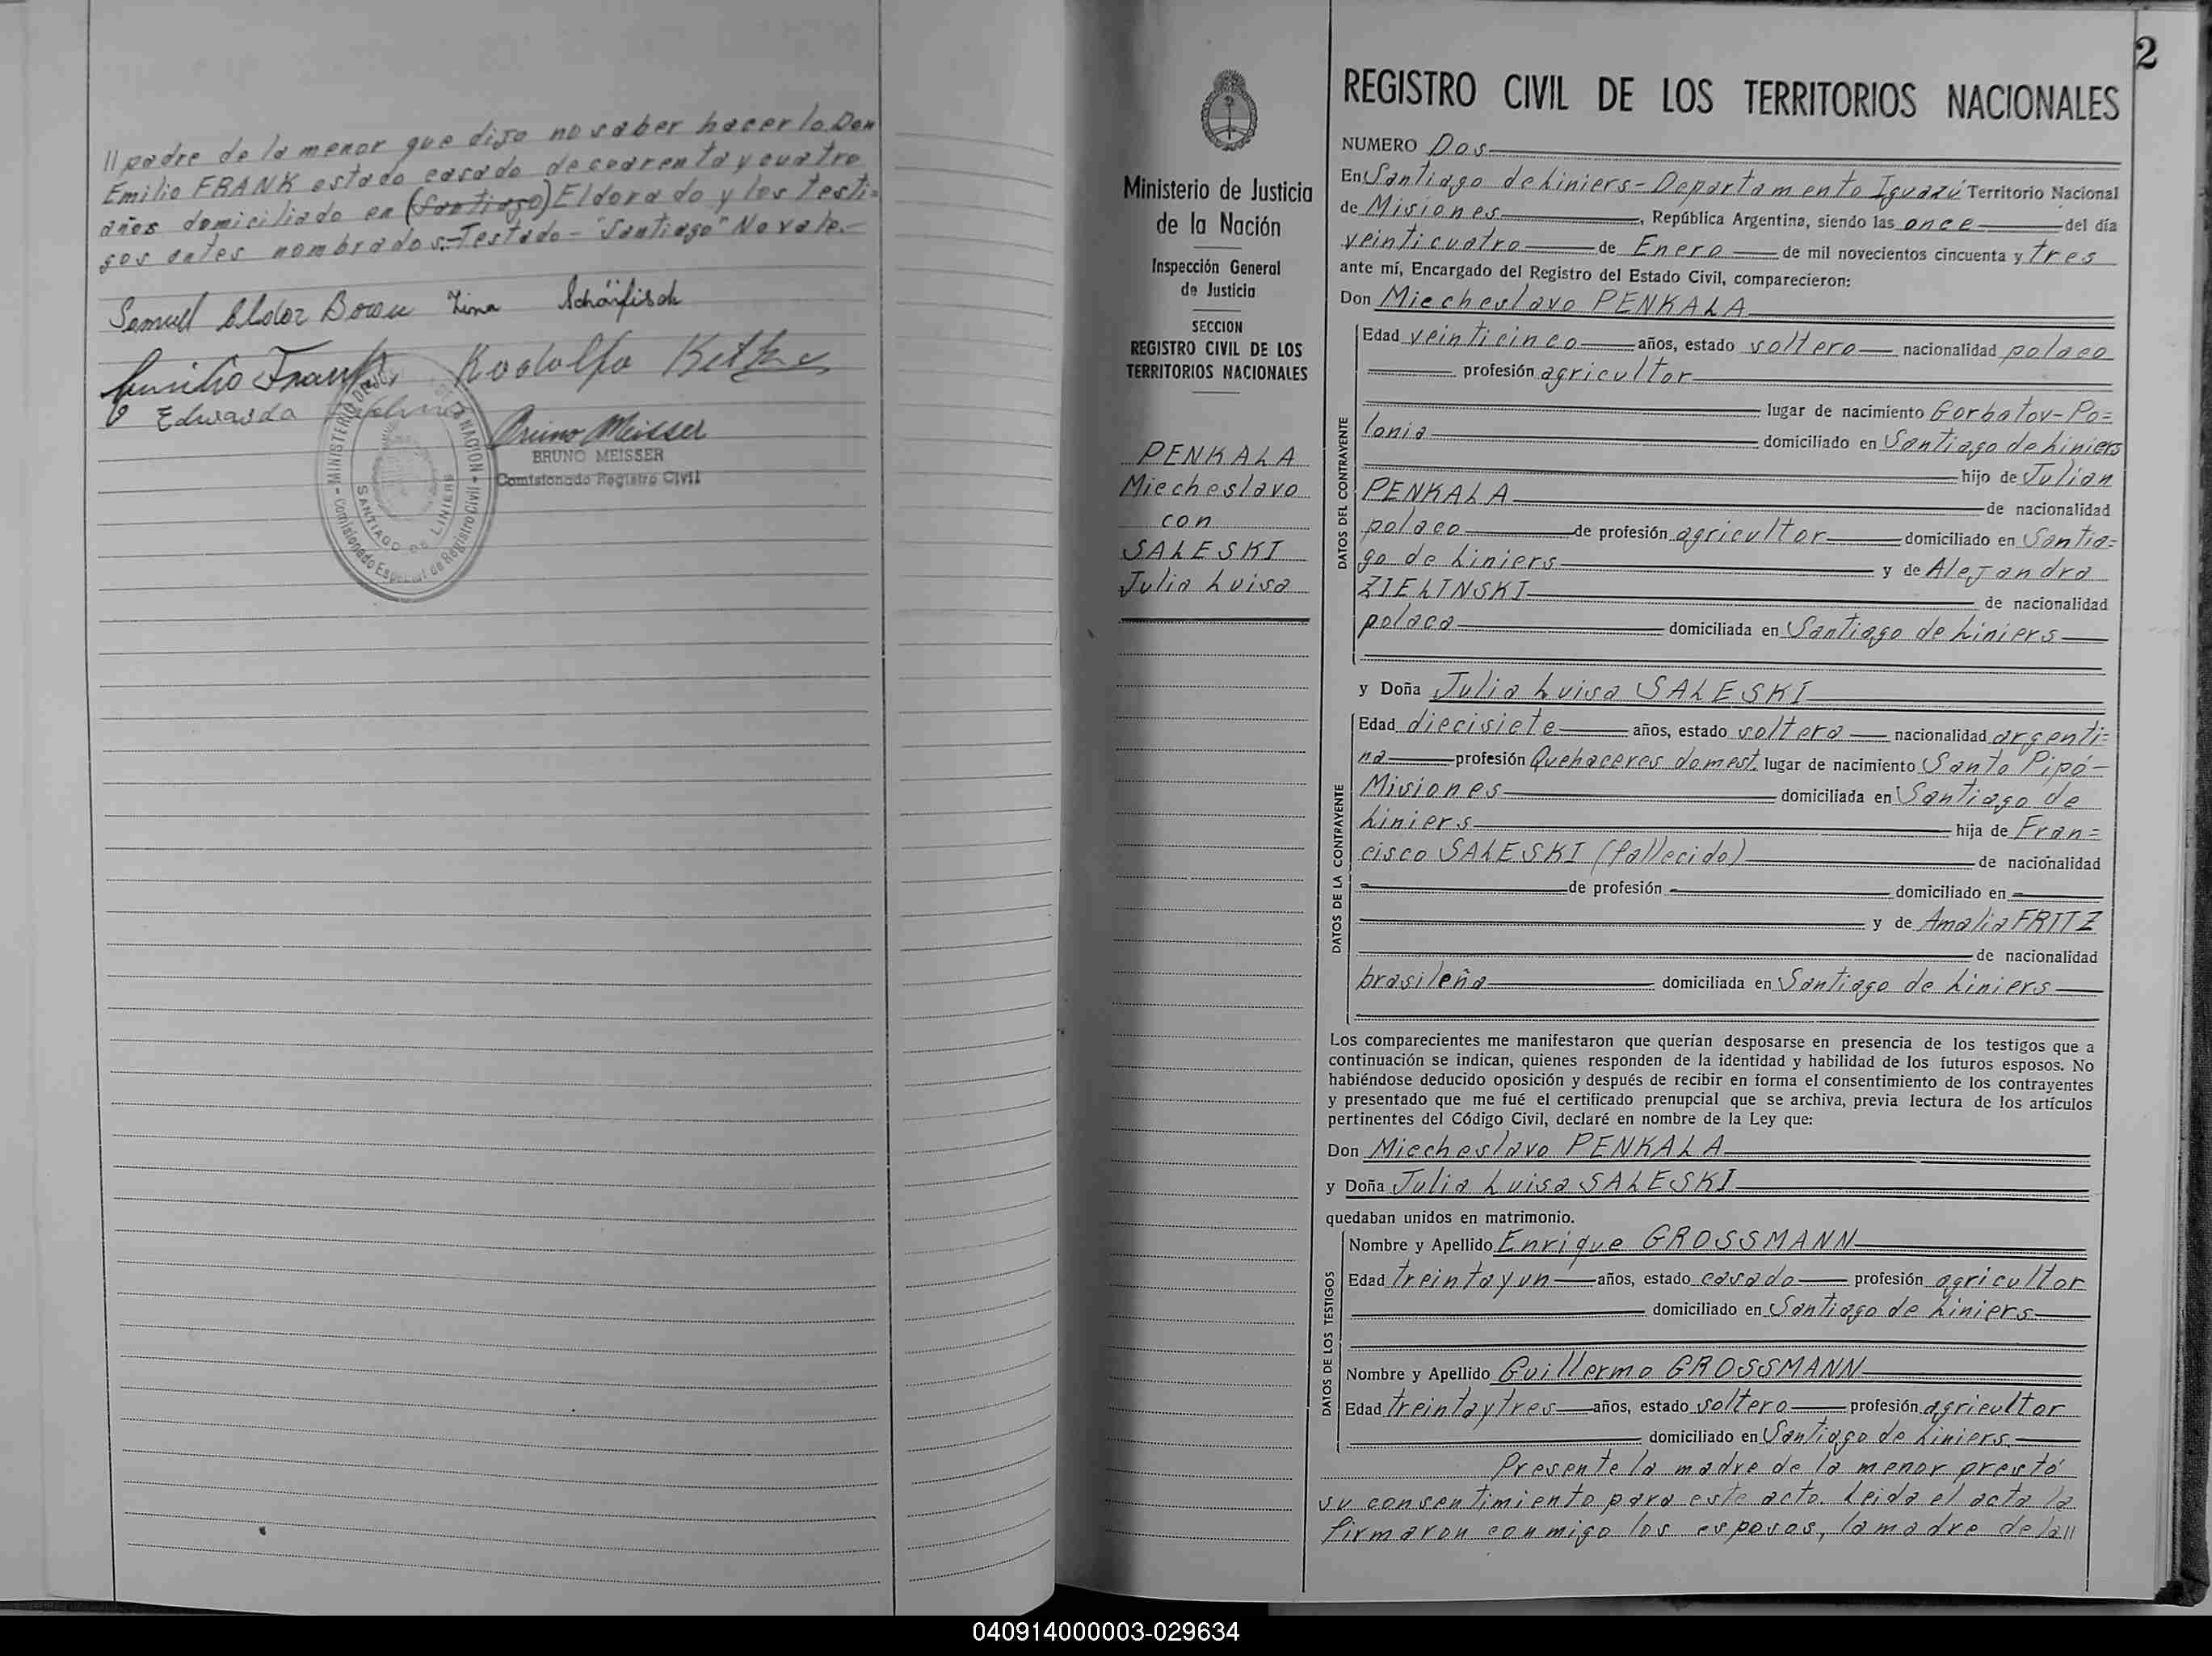 // padre de la menor que dijo no saber hacerlo Don
Emilio FRANK estado casado de cuarenta y cuatro
años domiciliado en (Santiago) Eldorado y los testi=
gos antes nombrados.- Testado - "Santiago" No vale.-
Samuel Eldor Zina Schäifisch
Emilio Frank Rodolfo
Eduardo
Bruno Meisser
BRUNO MEISSER
Comisionado Registro Civil
MINISTERIO DE NACION
SANTIAGO DE LINIERS
Comisionado Especial de Registro Civil
2
Ministerio de Justicia
de la Nación
Inspección General
de Justicia
SECCION
REGISTRO CIVIL DE LOS
TERRITORIOS NACIONALES
PENKALA
Miecheslavo
con
SALESKI
Julia Luisa
REGISTRO CIVIL DE LOS TERRITORIOS NACIONALES
NUMERO Dos
En Santiago de Liniers - Departamento Iguazú Territorio Nacional
de Misiones, República Argentina, siendo las once del día
veinticuatro de Enero de mil novecientos cincuenta y tres
ante mí, Encargado del Registro del Estado Civil, comparecieron:
Don Miecheslavo PENKALA
DATOS DEL CONTRAYENTE
Edad veinticinco años, estado soltero nacionalidad polaco
profesión agricultor
lugar de nacimiento Gorbatov - Po=
lonia domiciliado en Santiago de Liniers
hijo de Julian
PENKALA de nacionalidad
polaco de profesión agricultor domiciliado en Santia=
go de Liniers y de Alejandra
ZIELINSKI de nacionalidad
polaca domiciliada en Santiago de Liniers
y Doña Julia Luisa SALESKI
DATOS DE LA CONTRAYENTE
Edad diecisiete años, estado soltera nacionalidad argenti=
na profesión Quehaceres domest. lugar de nacimiento Santo Pipó -
Misiones domiciliada en Santiago de
Liniers hija de Fran=
cisco SALESKI (fallecido) de nacionalidad
de profesión domiciliado en
y de Amalia FRITZ
de nacionalidad
brasileña domiciliada en Santiago de Liniers
Los comparecientes me manifestaron que querían desposarse en presencia de los testigos que a
continuación se indican, quienes responden de la identidad y habilidad de los futuros esposos. No
habiéndose deducido oposición y después de recibir en forma el consentimiento de los contrayentes
y presentado que me fué el certificado prenupcial que se archiva, previa lectura de los artículos
pertinentes del Código Civil, declaré en nombre de la Ley que:
Don Miecheslavo PENKALA
y Doña Julia Luisa SALESKI
quedaban unidos en matrimonio.
DATOS DE LOS TESTIGOS
Nombre y Apellido Enrique GROSSMANN
Edad treinta y un años, estado casado profesión agricultor
domiciliado en Santiago de Liniers.
Nombre y Apellido Guillermo GROSSMANN
Edad treinta y tres años, estado soltero profesión agricultor
domiciliado en Santiago de Liniers.
Presente la madre de la menor prestó
su consentimiento para este acto. Leida el acta la
firmaron conmigo los esposos, la madre de la //
040914000003-029634